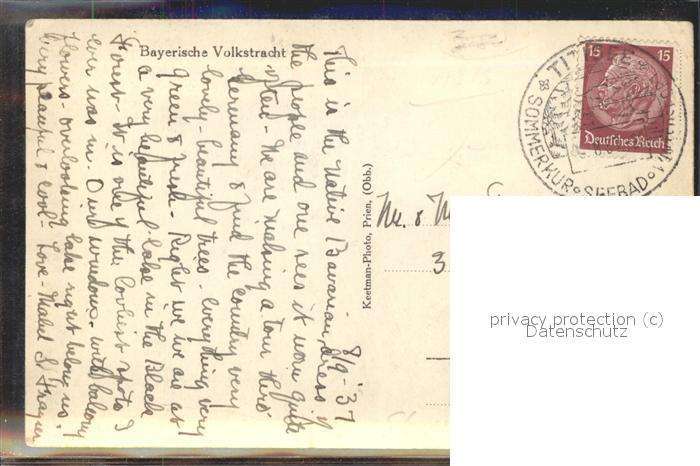 Bayerische Volkstracht
8/9-'37
This is the native Bavarian dress of
the people and one sees it worn quite
often - We are making a tour thro
Germany & find the country very
lovely - beautiful trees - everything very
green & fresh - Right we are at
a very beautiful lake in the Black
Forest - It is one of the loveliest spots I
ever was in. Our windows - with balcony
flowers - overlooking lake right below us.
Very peaceful & cool - Love - Mabel
Keetman-Photo, Prien, (Obb.)
Mr. &
3
15 15
Deutsches Reich
TITISEE
SOMMERKUR SEEBAD
privacy protection (c)
Datenschutz